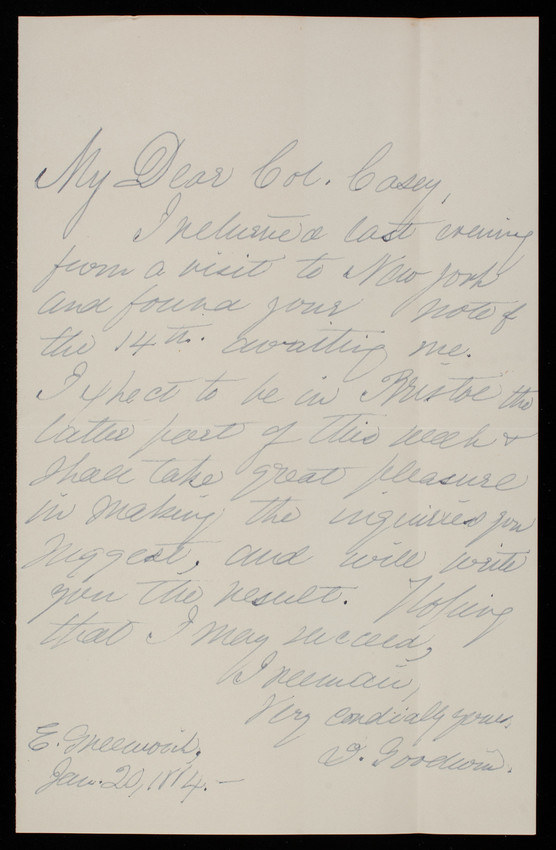 My Dear Col. Casey,
I returned last evening
from a visit to New York
and found your note of
the 14th. awaiting me.
I expect to be in Bristol the
latter part of this week &
shall take great pleasure
in making the inquiries you
suggest, and will write
you the result. Hoping
that I may succeed,
I remain,
Very cordially yours,
D. Goodwin.
E. Greenwich,
Jan. 20, 1884.-